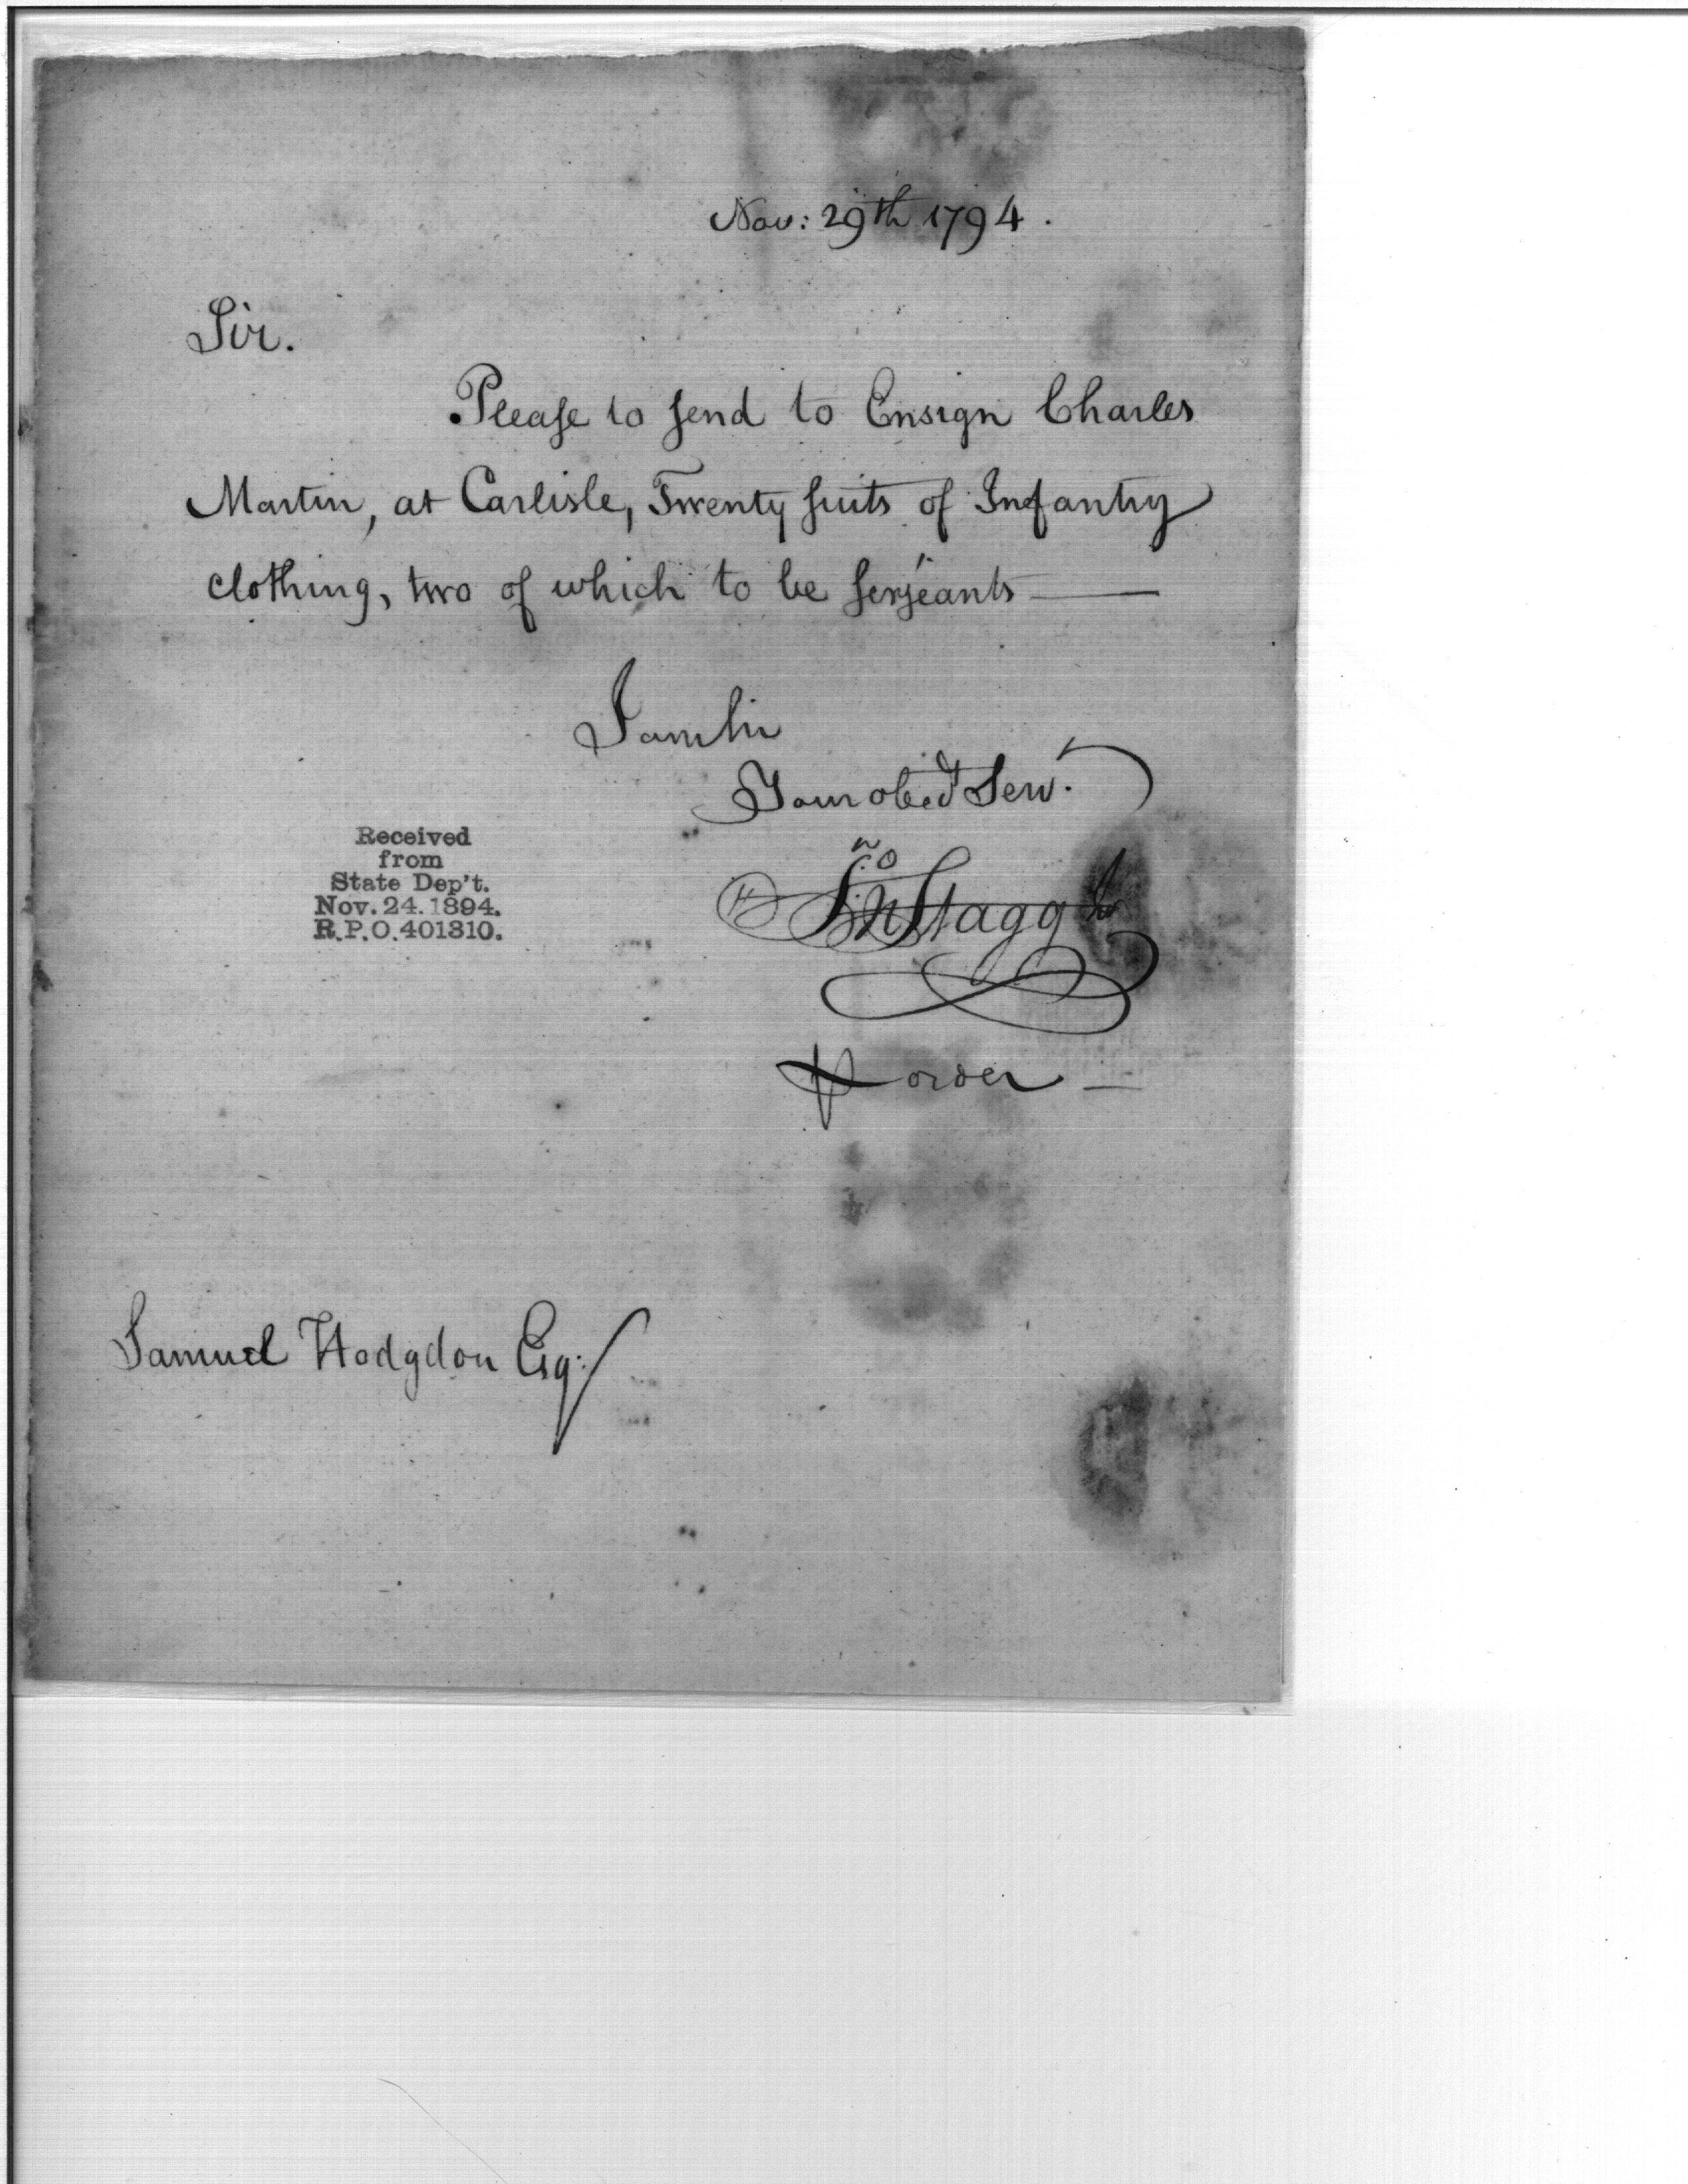 Nov: 29th 1794.
Sir.
Please to send to Ensign Charles
Martin, at Carlisle, Twenty suits of Infantry
clothing, two of which to be serjeants —
I am Sir
Your obed Serv.
Jno Stagg Jr
order —
Received
from
State Dep't.
Nov. 24. 1894.
R.P.O. 401310.
Samuel Hodgdon Esq: